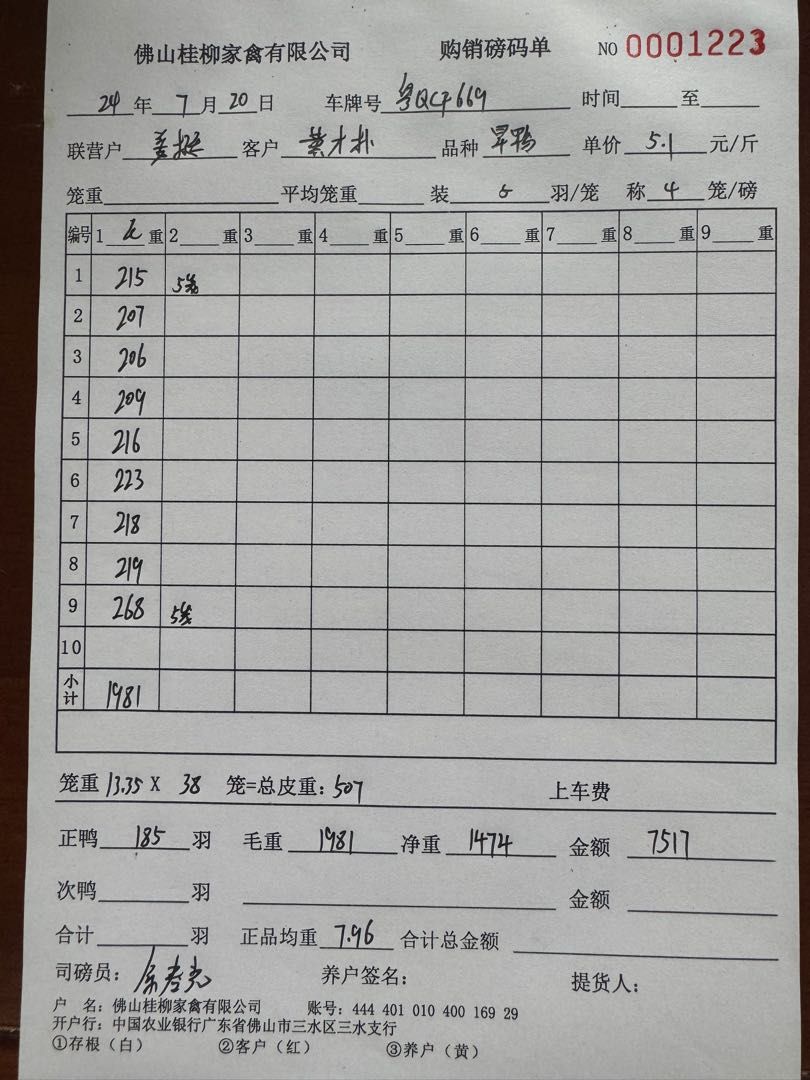 佛山桂柳家禽有限公司 购销磅码单 NO 0001223
24 年 7 月 20 日 车牌号 粤QCF669 时间 至
联营户 客户 品种 旱鸭 单价 5.1 元/斤
笼重 平均笼重 装 5 羽/笼 称 4 笼/磅
编号 1 毛 重 2 重 3 重 4 重 5 重 6 重 7 重 8 重 9 重
1 215 5笼
2 207
3 206
4 209
5 216
6 223
7 218
8 219
9 268 5笼
10
小计 1981
笼重 13.35 X 38 笼=总皮重: 507 上车费
正鸭 185 羽 毛重 1981 净重 1474 金额 7517
次鸭 羽 金额
合计 羽 正品均重 7.96 合计总金额
司磅员: 养户签名: 提货人:
户 名: 佛山桂柳家禽有限公司 账号: 444 401 010 400 169 29
开户行: 中国农业银行广东省佛山市三水区三水支行
①存根(白) ②客户(红) ③养户(黄)